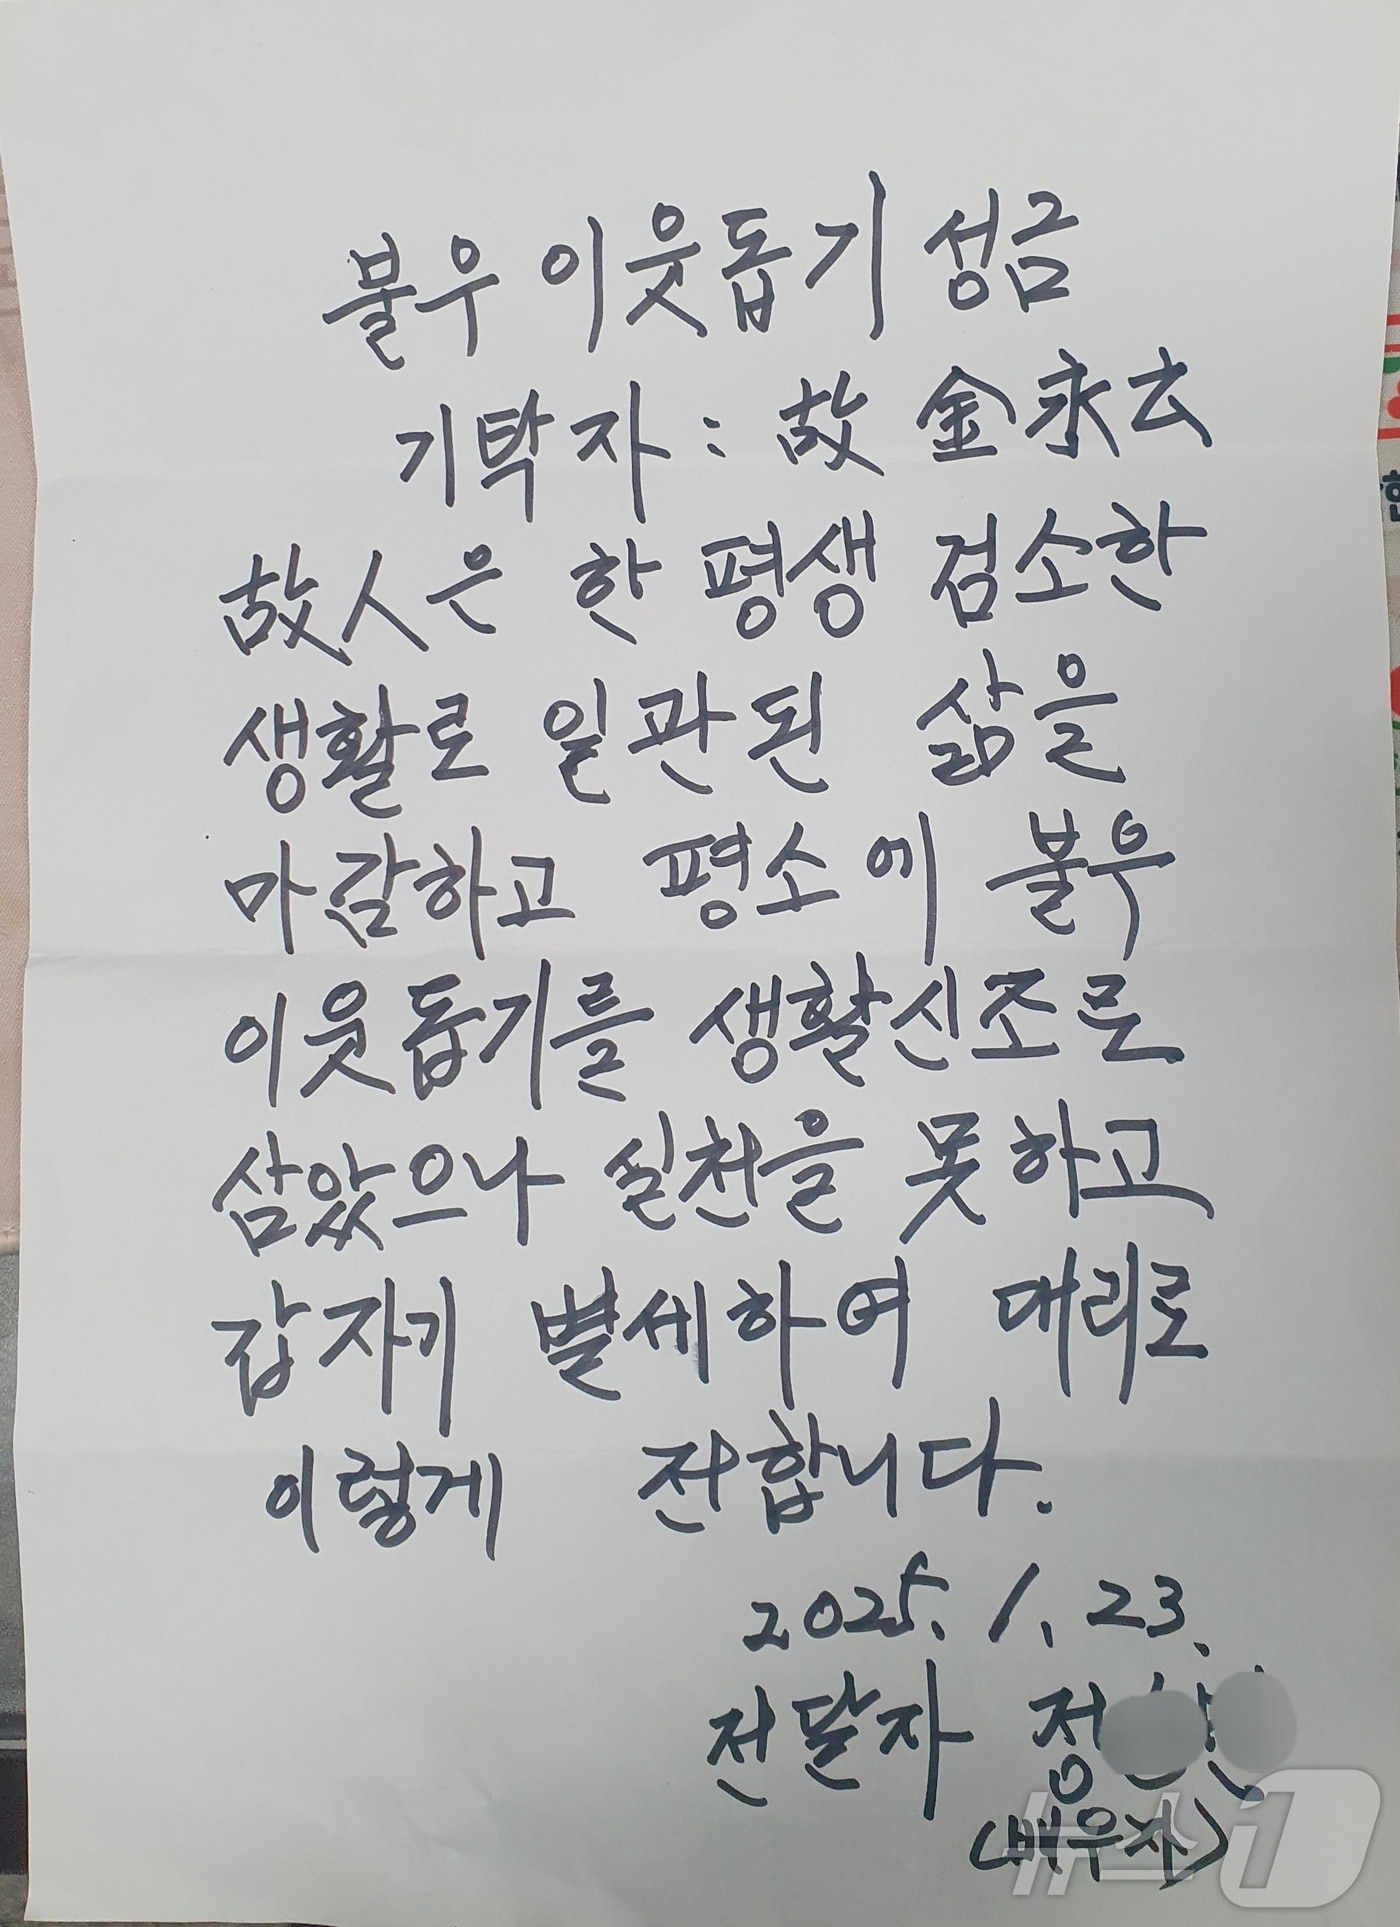 불우 이웃돕기 성금
기탁자 : 故 金永云
故人은 한 평생 검소한
생활로 일관된 삶을
마감하고 평소에 불우
이웃돕기를 생활신조로
삼았으나 실천을 못하고
갑자기 별세하여 대리로
이렇게 전합니다.
2025. 1. 23.
전달자 정
(배우자)
뉴스1